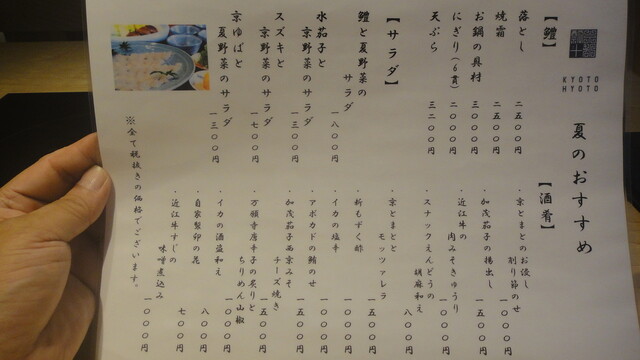 KYOTO
HYOTO
夏のおすすめ
【鱧】
落とし 二五〇〇円
焼霜 二五〇〇円
お鍋の具材 三〇〇〇円
にぎり（6貫） 二〇〇〇円
天ぷら 三二〇〇円
【サラダ】
鱧と夏野菜の
サラダ 一八〇〇円
水茄子と
京野菜のサラダ 一三〇〇円
スズキと
京野菜のサラダ 一七〇〇円
京ゆばと
夏野菜のサラダ 一三〇〇円
【酒肴】
・京とまとのお浸し
削り節のせ 一〇〇〇円
・加茂茄子の揚出し 一五〇〇円
・近江牛の
肉みそきゅうり 一〇〇〇円
・スナックえんどうの
胡麻和え 八〇〇円
・京とまとと
モッツァレラ 一五〇〇円
・新もずく酢 一〇〇〇円
・イカの塩辛 一〇〇〇円
・アボカドの鮪のせ 一五〇〇円
・加茂茄子西京みそ
チーズ焼き 一五〇〇円
・万願寺唐辛子の炙りと
ちりめん山椒 一〇〇〇円
・イカの酒盗和え 八〇〇円
・自家製卵の花 七〇〇円
・近江牛すじの
味噌煮込み 一〇〇〇円
※全て税抜きの価格でございます。